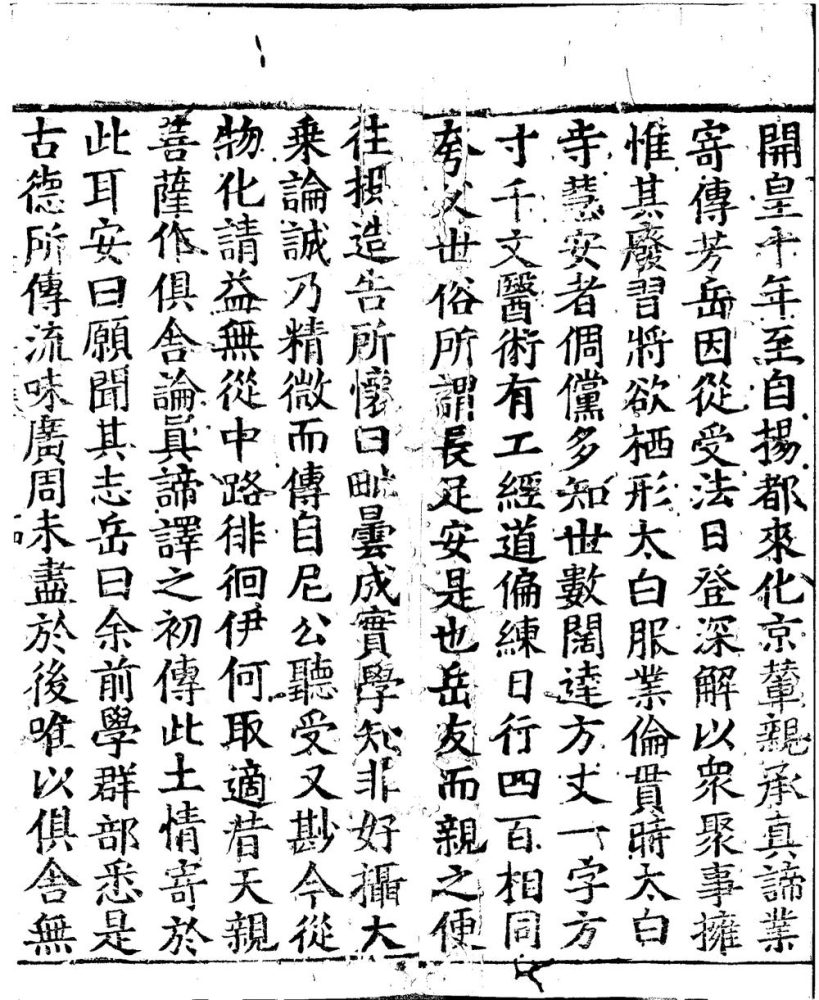 開皇十年至自揚都來化京輦親承真諦業
寄傳芳岳因從受法日登深解以衆聚事擁
惟其廢習將欲栖形太白服業倫貫時太白
寺慧安者倜儻多知世數闊達方丈一字方
寸千文醫術有工經道偏練日行四百相同
夸父世俗所謂長足安是也岳友而親之便
往揔造告所懷曰毗曇成實學知非好攝大
乗論誠乃精微而傳自尼公聽受又斟今從
物化請益無從中路徘徊伊何取適昔天親
菩薩作俱舍論真諦譯之初傳此土情寄於
此耳安曰願聞其志岳曰余前學群部悉是
古德所傳流味廣周未盡於後唯以俱舍無